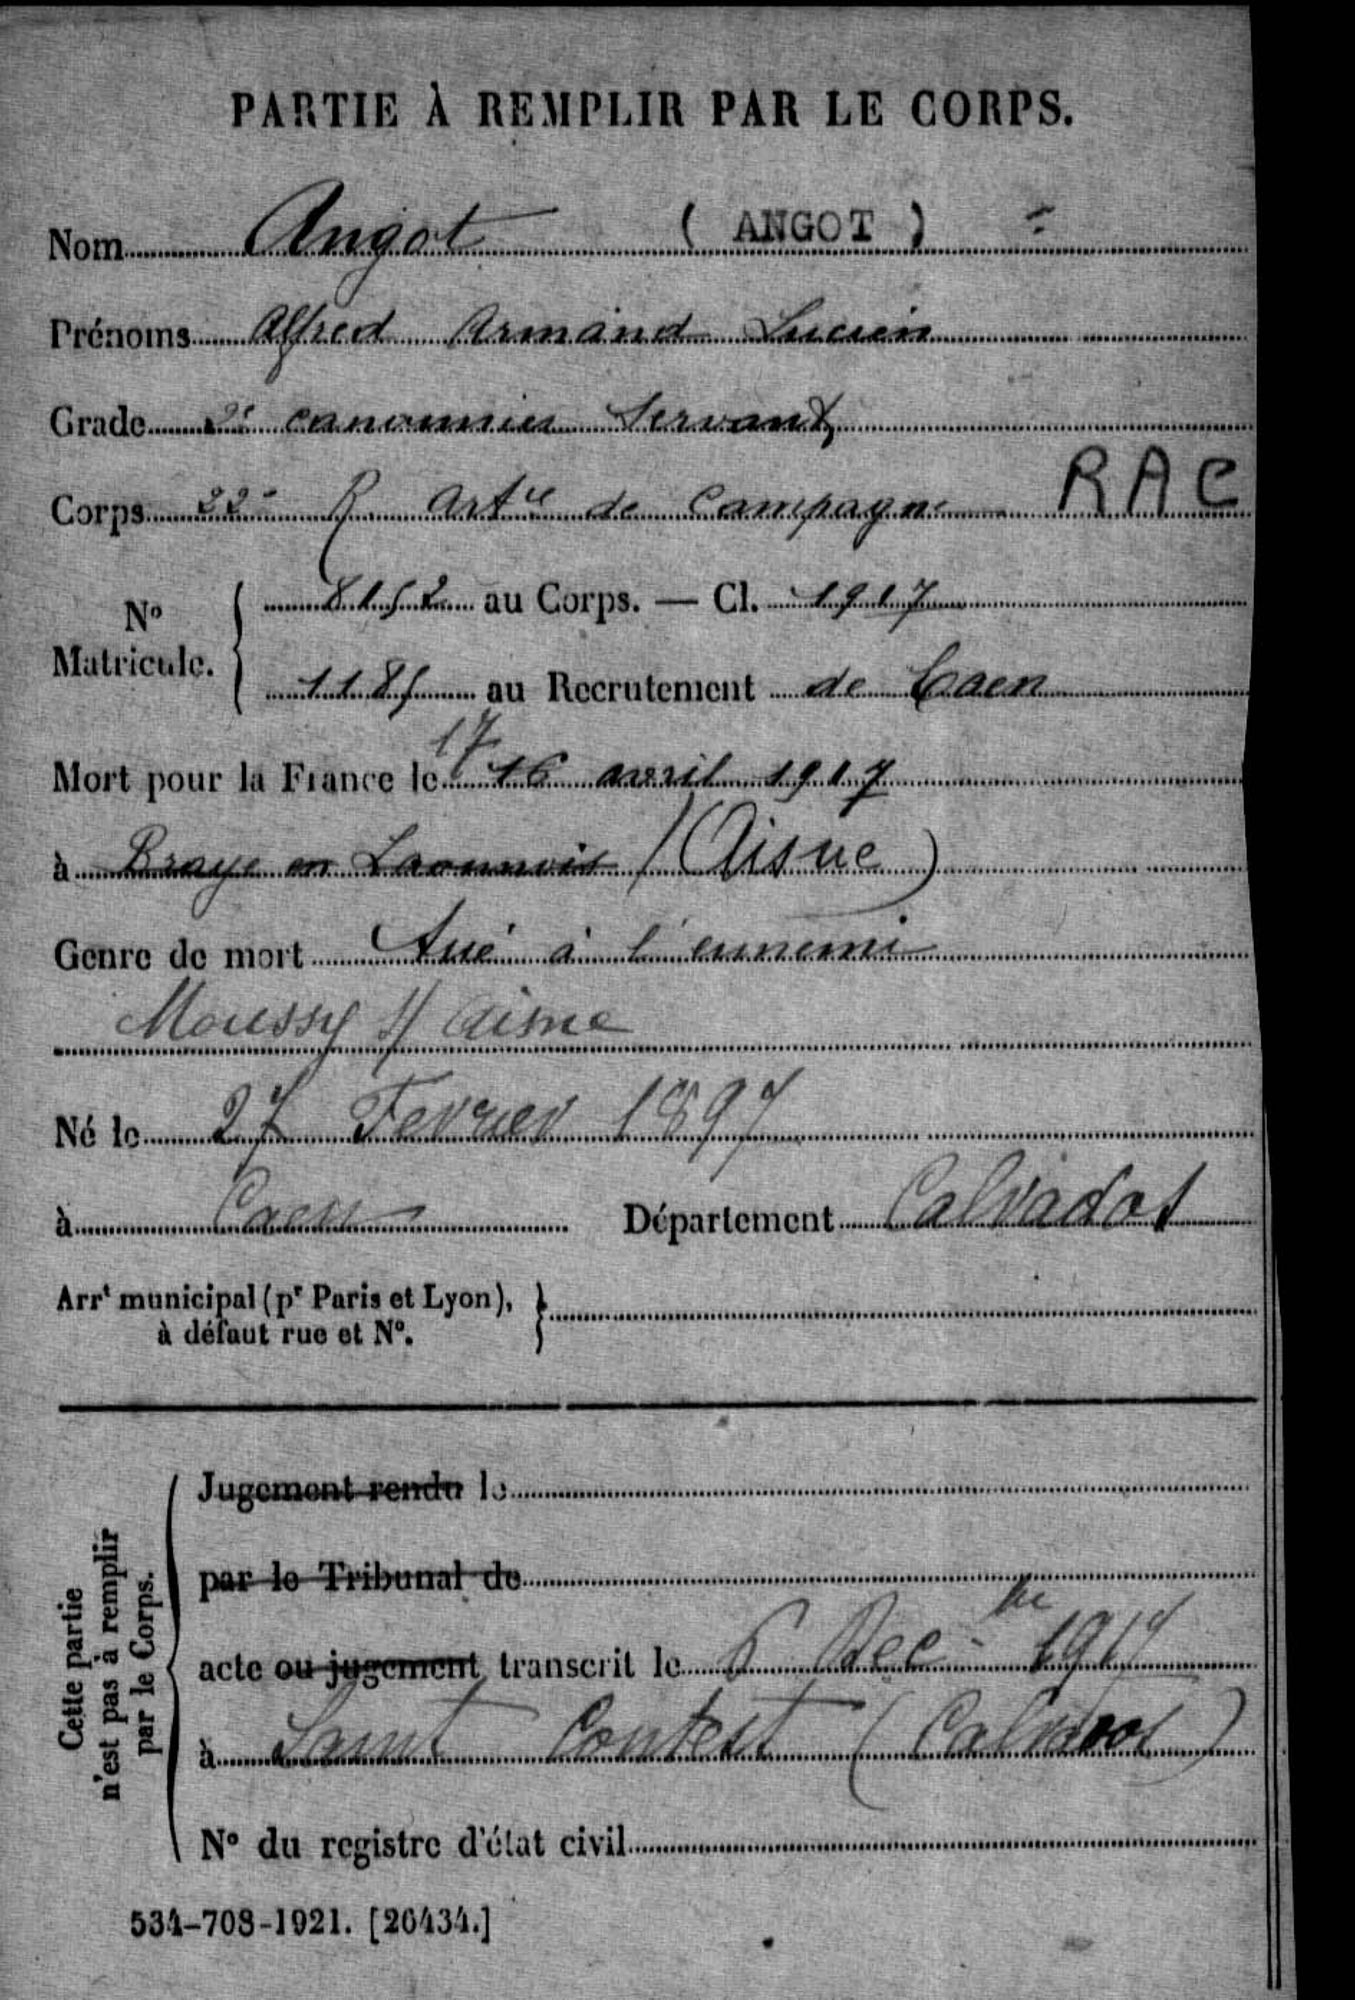 PARTIE À REMPLIR PAR LE CORPS.
Nom Angot ( ANGOT ) =
Prénoms Alfred Armand Lucien
Grade 2e canonnier Servant
Corps 22e R. Artie de Campagne RAC
No Matricule. { 8152 au Corps. — Cl. 1917
1185 au Recrutement de Caen
17
Mort pour la France le 16 avril 1917
à Braye en Laonnois (Aisne)
Genre de mort tué à l'ennemi
Moussy s/ Aisne
Né le 27 Fevrier 1897
à Caen Département Calvados
Arrt municipal (pr Paris et Lyon), }
à défaut rue et No.
Cette partie
n'est pas à remplir
par le Corps.
Jugement rendu le
par le Tribunal de
acte ou jugement transcrit le 6 Dec-bre 1917
à Saint Contest (Calvados)
No du registre d'état civil
534-708-1921. [26434.]